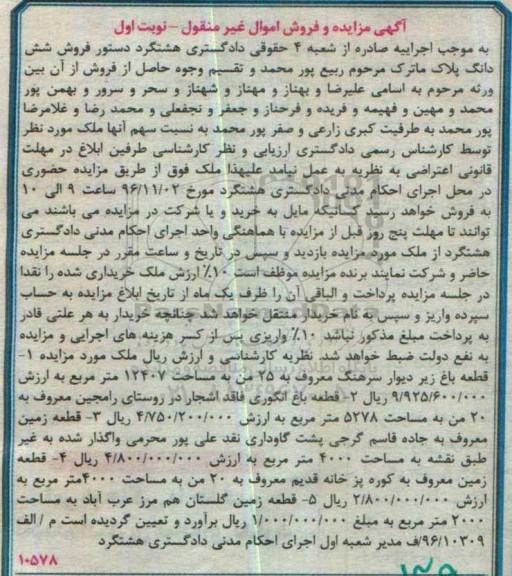 آگهی مزایده و فروش اموال غیر منقول - نوبت اول
به موجب اجراییه صادره از شعبه ۴ حقوقی دادگستری هشتگرد دستور فروش شش
دانگ پلاک ماترک مرحوم ربیع پور محمد و تقسیم وجوه حاصل از فروش از آن بین
ورثه مرحوم به اسامی علیرضا و بهناز و مهناز و شهناز و سحر و سرور و بهمن پور
محمد و مهین و فهیمه و فریده و فرحناز و جعفر و نجفعلی و محمد رضا و غلامرضا
پور محمد به طرفیت کبری زارعی و صفر پور محمد به نسبت سهم آنها ملک مورد نظر
توسط کارشناس رسمی دادگستری ارزیابی و نظر کارشناسی طرفین ابلاغ در مهلت
قانونی اعتراضی به نظریه به عمل نیامد علیهذا ملک فوق از طریق مزایده حضوری
در محل اجرای احکام مدنی دادگستری هشتگرد مورخ ۹۶/۱۱/۰۲ ساعت ۹ الی ۱۰
به فروش خواهد رسید کسانیکه مایل به خرید و یا شرکت در مزایده می باشند می
توانند تا مهلت پنج روز قبل از مزایده با هماهنگی واحد اجرای احکام مدنی دادگستری
هشتگرد از ملک مورد مزایده بازدید و سپس در تاریخ و ساعت مقرر در جلسه مزایده
حاضر و شرکت نمایند برنده مزایده موظف است ۱۰٪ ارزش ملک خریداری شده را نقدا
در جلسه مزایده پرداخت و الباقی آن را ظرف یک ماه از تاریخ ابلاغ مزایده به حساب
سپرده واریز و سپس به نام خریدار منتقل خواهد شد چنانچه خریدار به هر علتی قادر
به پرداخت مبلغ مذکور نباشد ۱۰٪ واریزی پس از کسر هزینه های اجرایی و مزایده
به نفع دولت ضبط خواهد شد. نظریه کارشناسی و ارزش ریال ملک مورد مزایده ۱-
قطعه باغ زیر دیوار سرهنگ معروف به ۲۵ من به مساحت ۱۲۴۰۷ متر مربع به ارزش
۹/۹۲۵/۶۰۰/۰۰۰ ریال ۲- قطعه باغ انگوری فاقد اشجار در روستای رامجین معروف به
۲۰ من به مساحت ۵۲۷۸ متر مربع به ارزش ۴/۷۵۰/۲۰۰/۰۰۰ ریال ۳- قطعه زمین
معروف به جاده قاسم گرجی پشت گاوداری نقد علی پور محرمی واگذار شده به غیر
طبق نقشه به مساحت ۴۰۰۰ متر مربع به ارزش ۴/۸۰۰/۰۰۰/۰۰۰ ریال ۴- قطعه
زمین معروف به کوره پز خانه قدیم معروف به ۲۰ من به مساحت ۴۰۰۰متر مربع به
ارزش ۲/۸۰۰/۰۰۰/۰۰۰ ریال ۵- قطعه زمین گلستان هم مرز عرب آباد به مساحت
۲۰۰۰ متر مربع به مبلغ ۱/۰۰۰/۰۰۰/۰۰۰ ریال برآورد و تعیین گردیده است م / الف
۹۶/۱۰۳۰۹/ف مدیر شعبه اول اجرای احکام مدنی دادگستری هشتگرد
۱۰۵۷۸